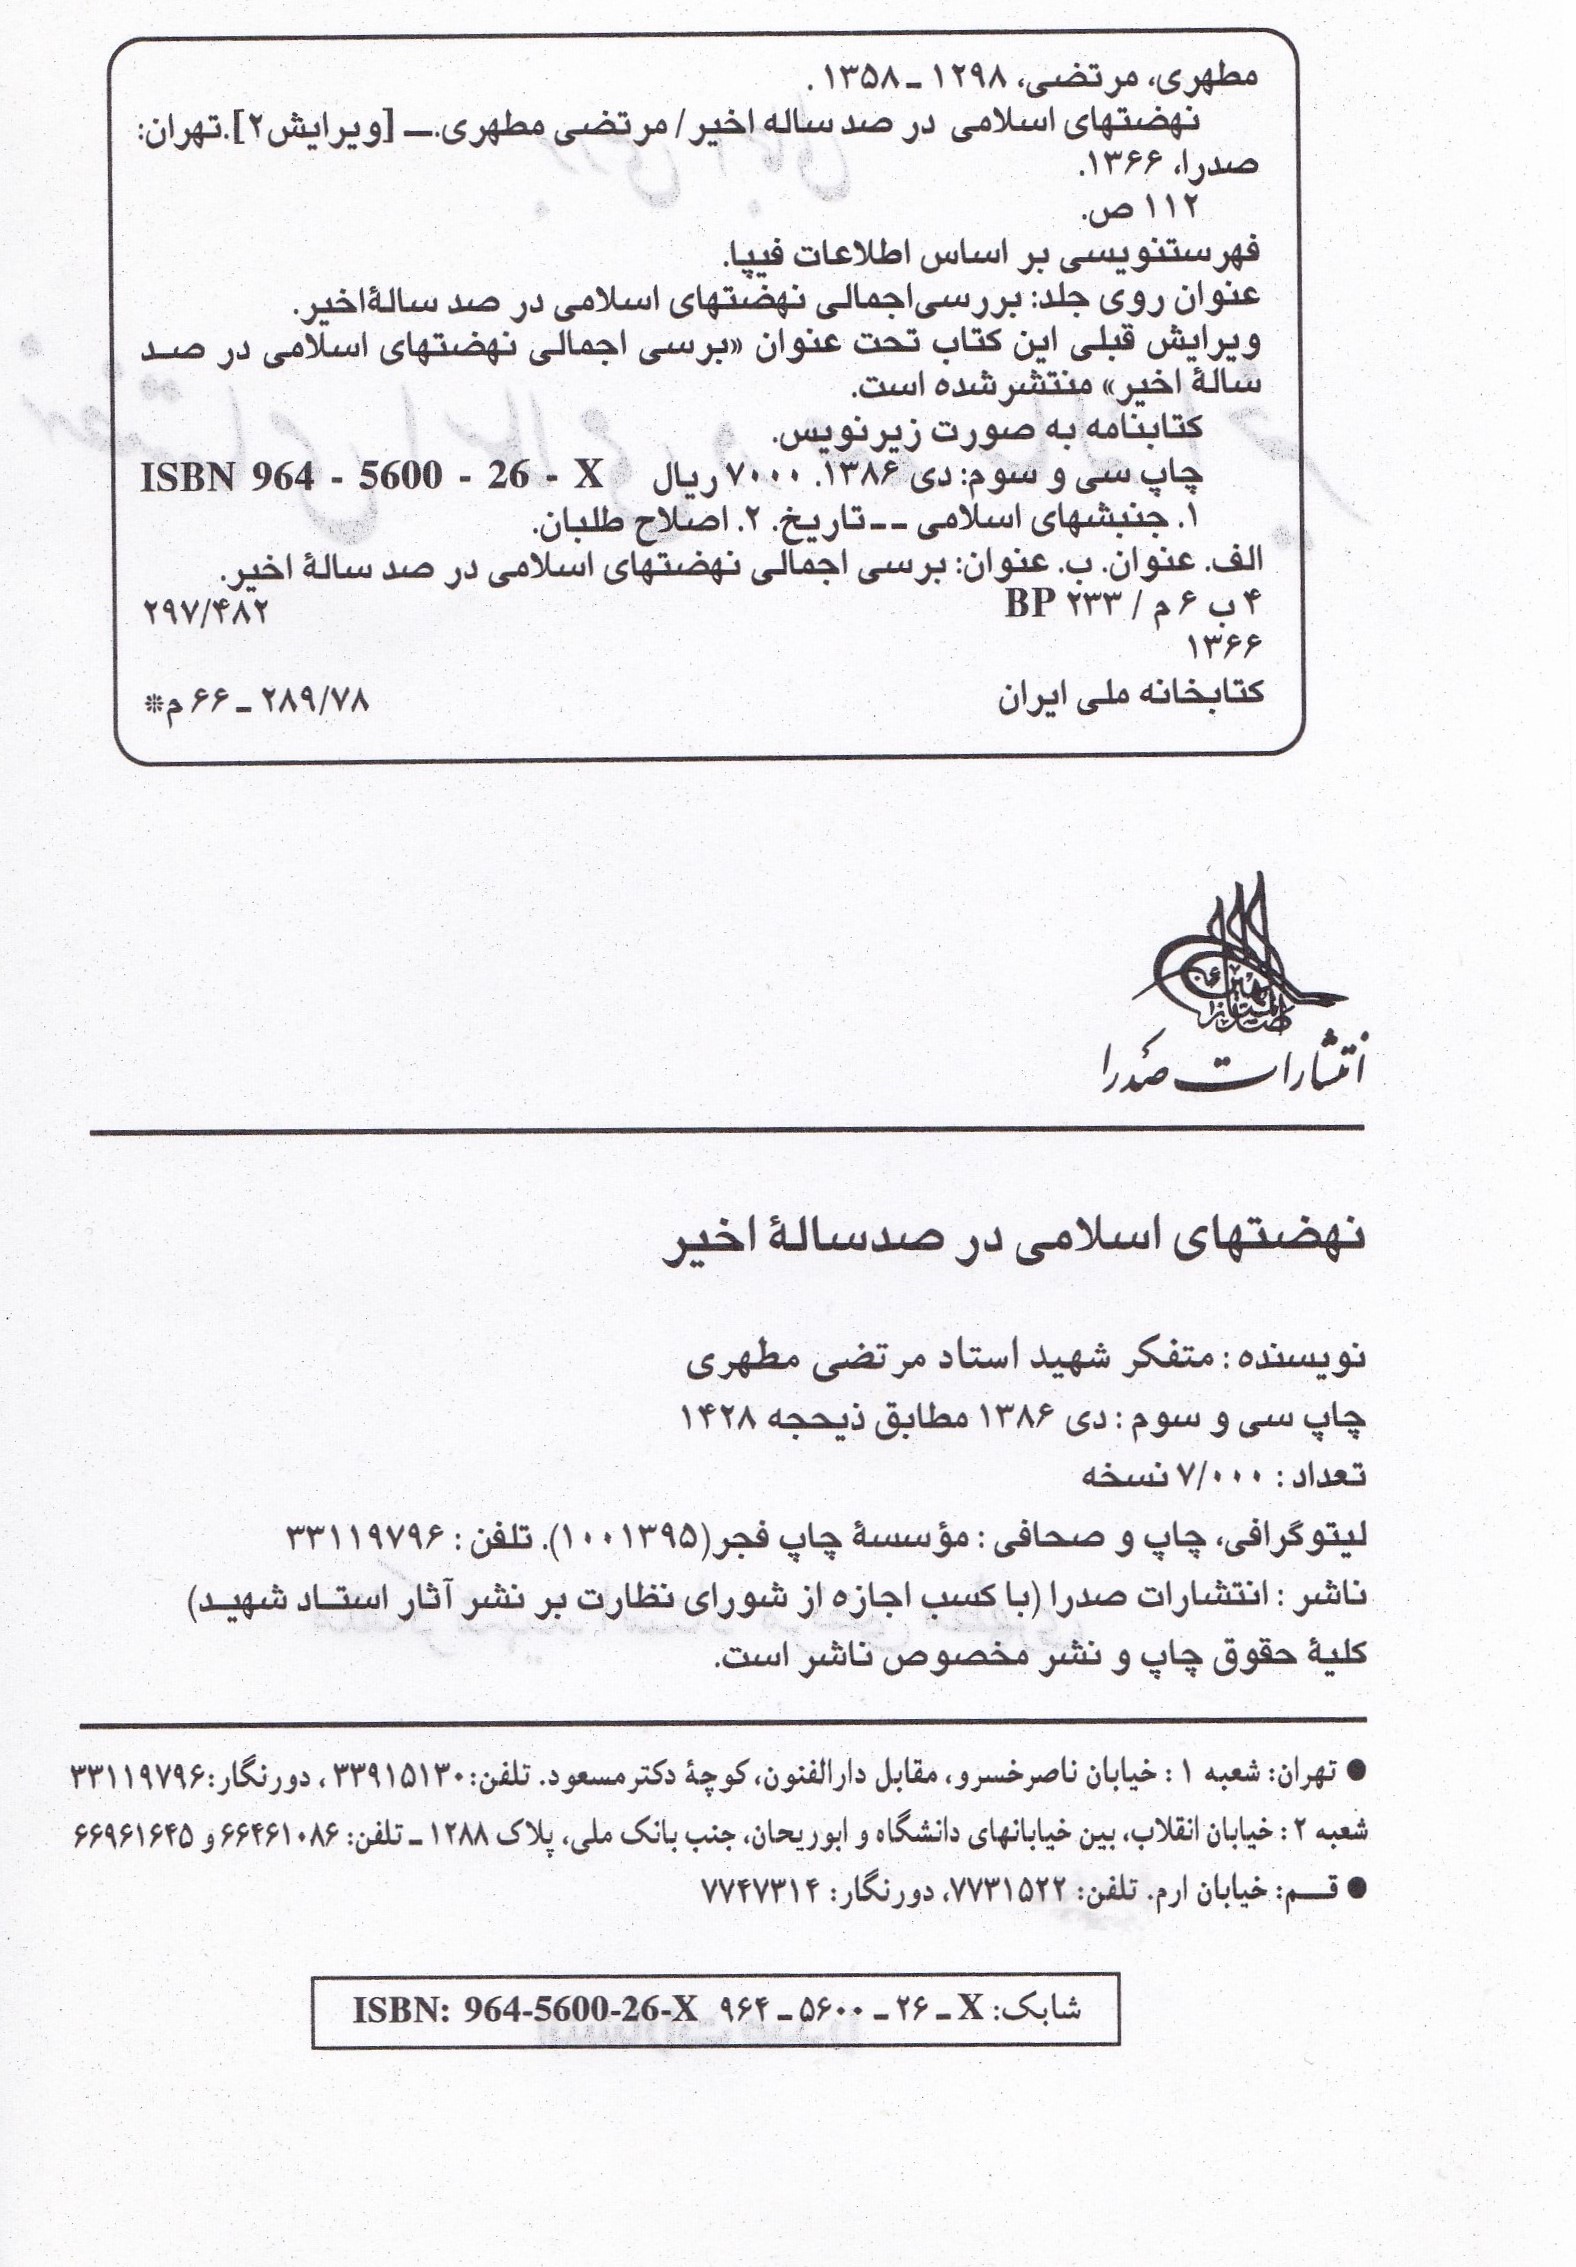 مطهری، مرتضی، ۱۲۹۸ ـ ۱۳۵۸ .
نهضتهای اسلامی در صد ساله اخیر / مرتضی مطهری. ـ [ویرایش۲]. تهران:
صدرا، ۱۳۶۶.
۱۱۲ ص.
فهرستنویسی بر اساس اطلاعات فیپا.
عنوان روی جلد: بررسی اجمالی نهضتهای اسلامی در صد سالهٔ اخیر.
ویرایش قبلی این کتاب تحت عنوان «برسی اجمالی نهضتهای اسلامی در صد
سالهٔ اخیر» منتشر شده است.
کتابنامه به صورت زیرنویس.
چاپ سی و سوم: دی ۱۳۸۶. ۷۰۰۰ ریال ISBN 964 - 5600 - 26 - X
۱. جنبشهای اسلامی -- تاریخ. ۲. اصلاح طلبان.
الف. عنوان. ب. عنوان: برسی اجمالی نهضتهای اسلامی در صد سالهٔ اخیر.
۴ ب ۶ م / ۲۳۳ BP ۲۹۷/۴۸۲
۱۳۶۶
کتابخانه ملی ایران ۲۸۹/۷۸ ـ ۶۶ م*
انتشارات صدرا
نهضتهای اسلامی در صدسالهٔ اخیر
نویسنده : متفکر شهید استاد مرتضی مطهری
چاپ سی و سوم : دی ۱۳۸۶ مطابق ذیحجه ۱۴۲۸
تعداد : ۷/۰۰۰ نسخه
لیتوگرافی، چاپ و صحافی : مؤسسهٔ چاپ فجر(۱۰۰۱۳۹۵). تلفن : ۳۳۱۱۹۷۹۶
ناشر : انتشارات صدرا (با کسب اجازه از شورای نظارت بر نشر آثار استاد شهید)
کلیهٔ حقوق چاپ و نشر مخصوص ناشر است.
● تهران: شعبه ۱ : خیابان ناصرخسرو، مقابل دارالفنون، کوچهٔ دکترمسعود. تلفن: ۳۳۹۱۵۱۳۰، دورنگار: ۳۳۱۱۹۷۹۶
شعبه ۲ : خیابان انقلاب، بین خیابانهای دانشگاه و ابوریحان، جنب بانک ملی، پلاک ۱۲۸۸ ـ تلفن: ۶۶۴۶۱۰۸۶ و ۶۶۹۶۱۶۴۵
● قم: خیابان ارم. تلفن: ۷۷۳۱۵۲۲، دورنگار: ۷۷۴۷۳۱۴
شابک: X ـ ۲۶ ـ ۵۶۰۰ ـ ۹۶۴ ISBN: 964-5600-26-X